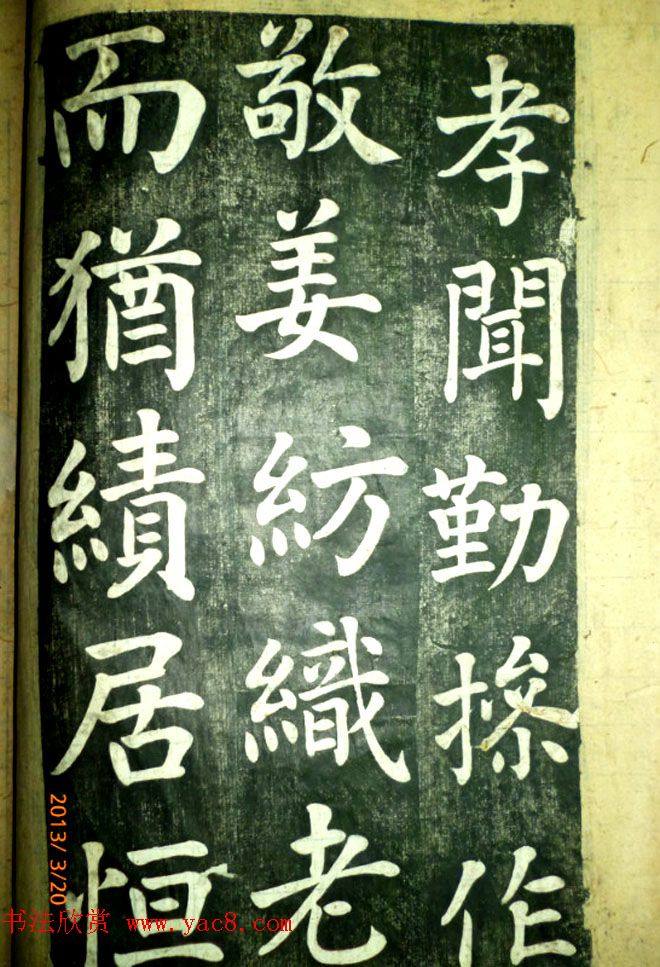 孝聞勤㨿作
敬姜紡織老
而猶績居恒
2013/ 3/20
书法欣赏 www.yac8.com